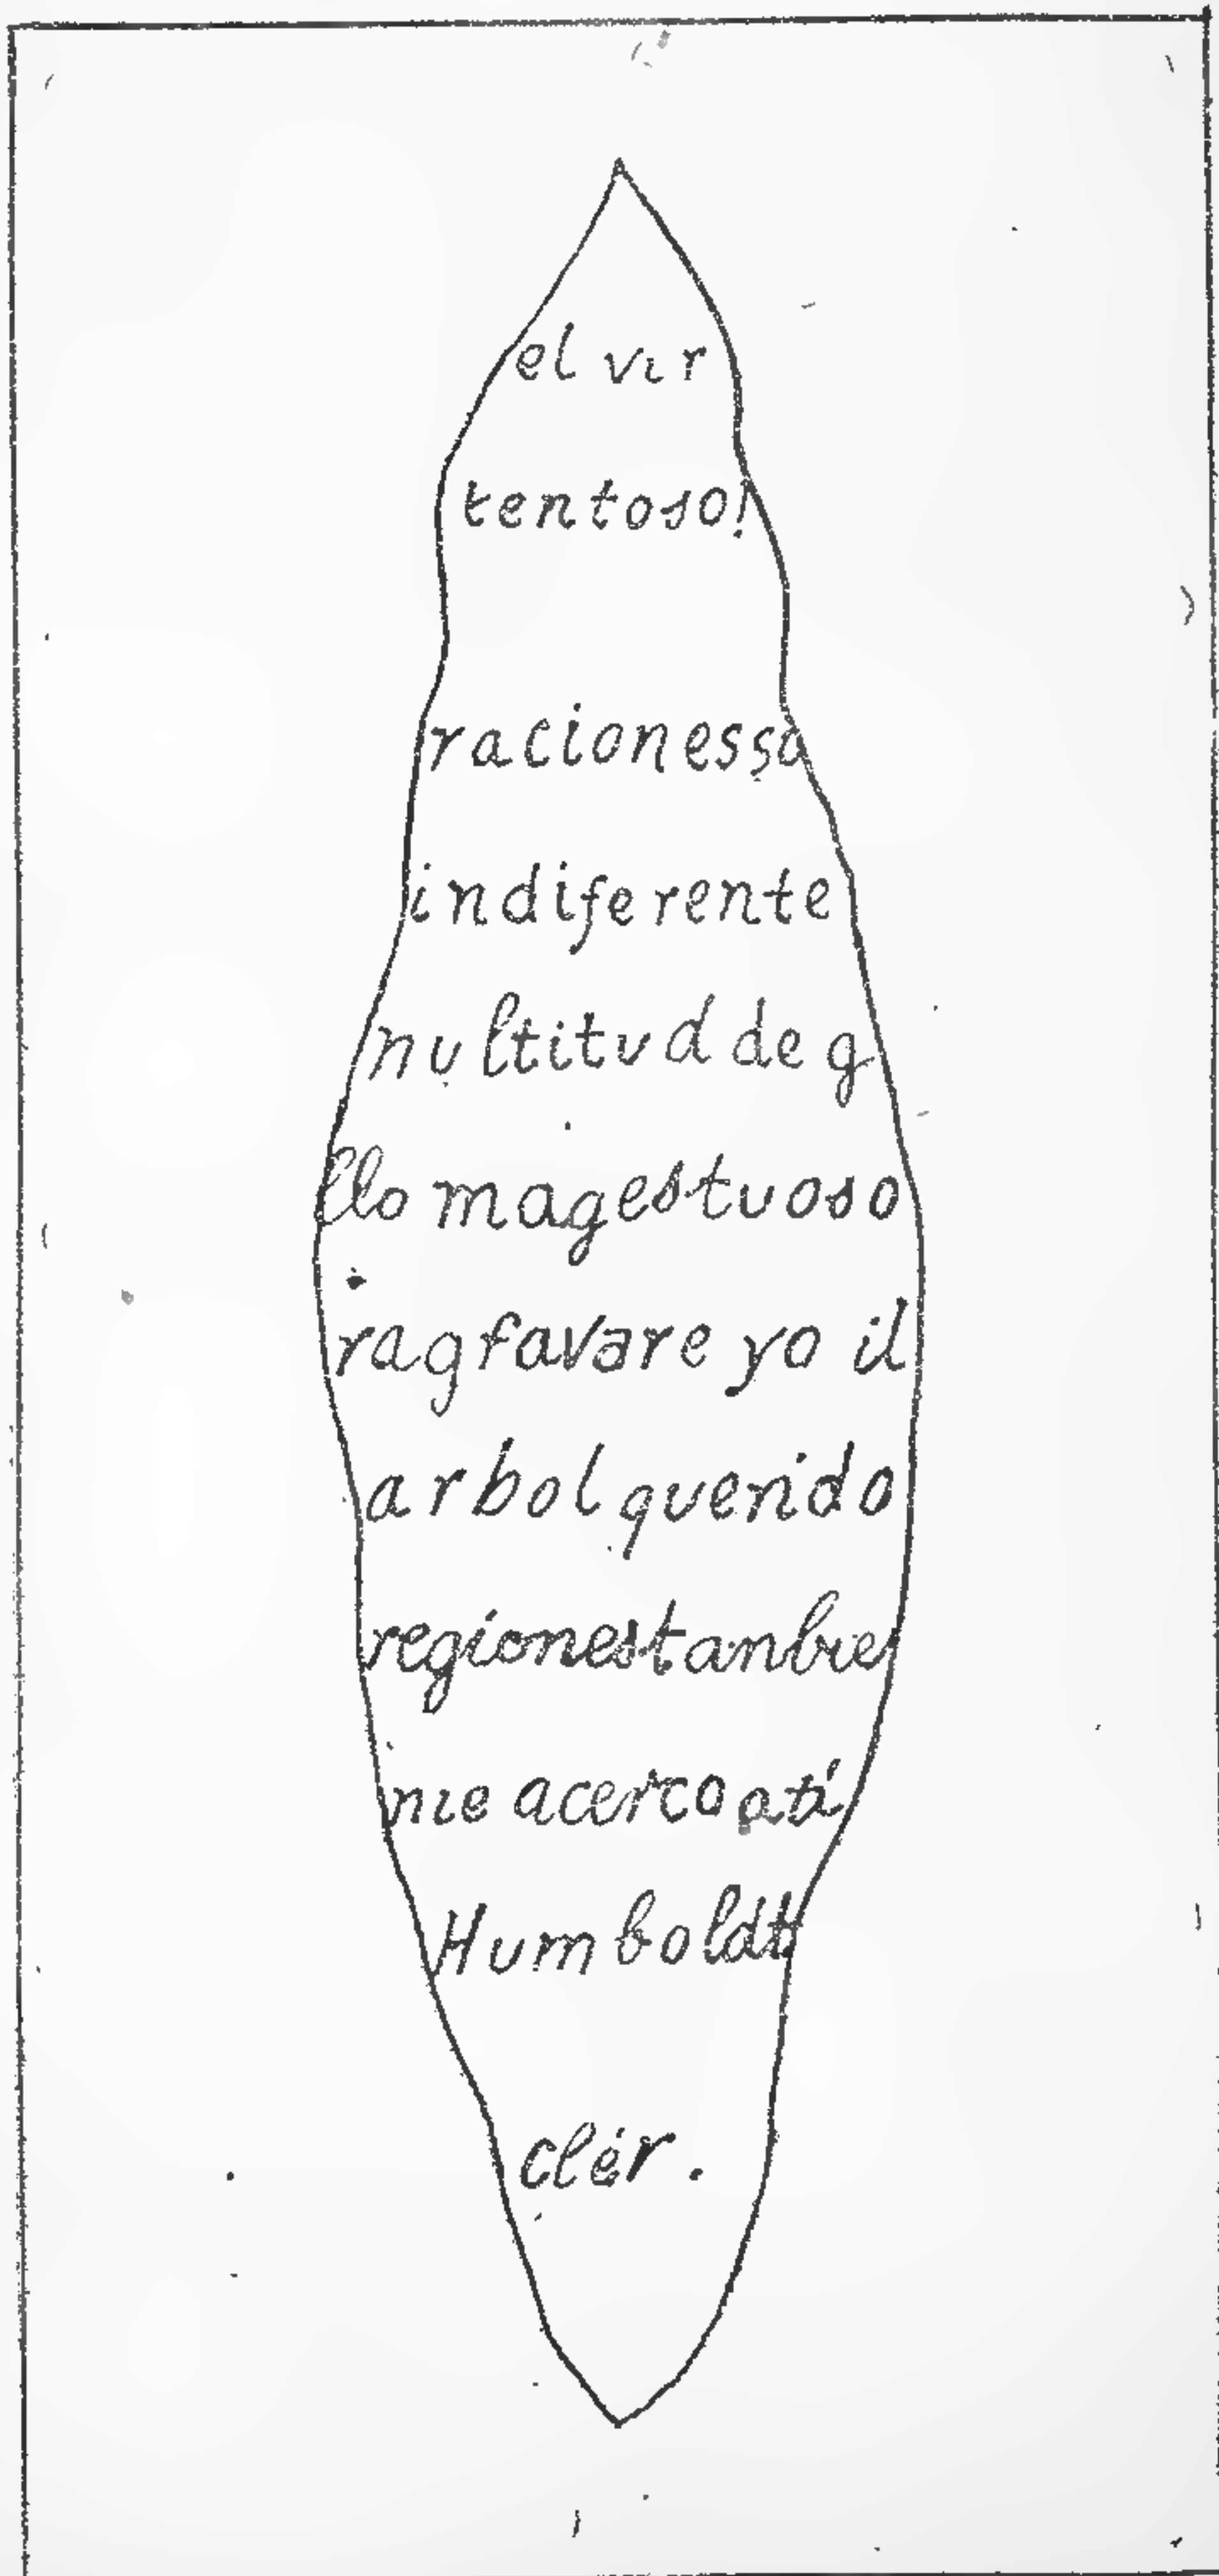 el vir
tentoso!
racionessa
indiferente
nultitud de g
llo magestuoso
ragfavare yo il
arbol querido
regionestanbie
me acerco a tí
Humboldt
clér.